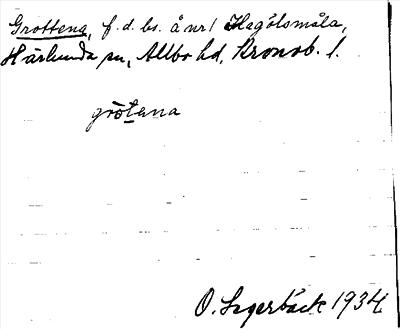 Grottena, f.d. bs. å nr 1 Hagölsmåla,
Härlunda sn, Allbo hd, Kronob. l.
gròtena
O. Lagerbäck 1934